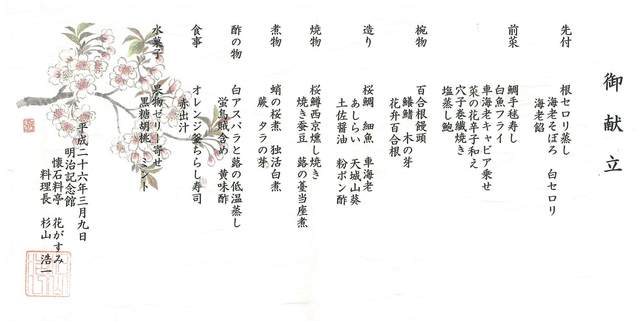 御献立
先付
根セロリ蒸し
海老そぼろ 白セロリ
海老餡
前菜
鯛手毬寿し
白魚フライ
車海老キャビア乗せ
菜の花辛子和え
穴子巻繊焼き
塩蒸し鮑
椀物
百合根饅頭
鱶鰭 木の芽
花弁百合根
造り
桜鯛 細魚 車海老
あしらい 天城山葵
土佐醤油 粉ポン酢
焼物
桜鱒西京燻し焼き
焼き蚕豆 蕗の薹当座煮
煮物
蛸の桜煮 独活白煮
蕨 タラの芽
酢の物
白アスパラと蕗の低温蒸し
蛍烏賊含め 黄味酢
食事
オレンジ釜ちらし寿司
赤出汁
水菓子
果物ゼリー寄せ
黒糖胡桃 ミント
平成二十六年三月九日
明治記念館
懐石料亭 花がすみ
料理長 杉山 浩一